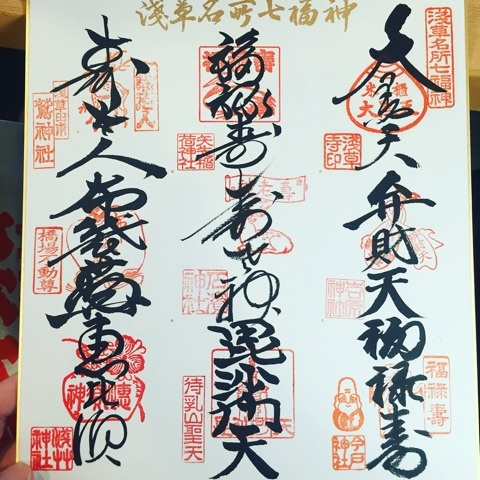 淺草名所七福神
淺草名所七福神
大黒天
淺草寺印
弁財天
吉原神社
福禄壽
福禄壽
今戸神社
福禄壽
矢先稲荷神社
寿老神
石濱神社
毘沙門天
待乳山聖天
寿老人
鷲神社
布袋尊
橋場不動尊
恵比須
浅草神社